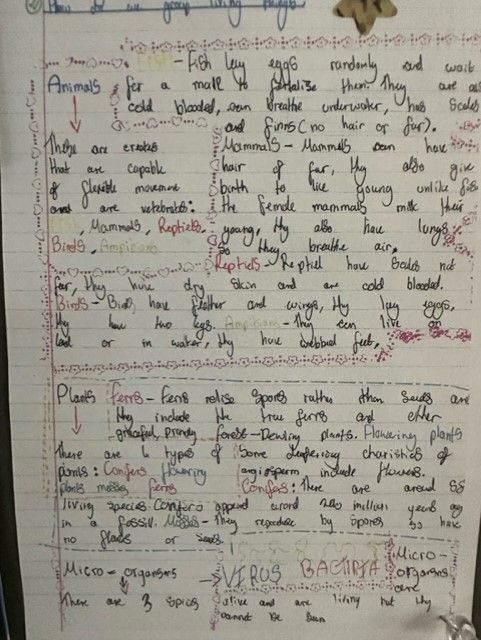 How do we group living things
FISH - Fish lay eggs randomly and wait
Animals for a male to fertalise them. They are als
cold blooded, can breathe underwater, has Scales
and finns (no hair or fur).
These are creates
that are capable
of flexible movement
and are vetebrates:
Fish, Mammals, Reptiels
Birds, Ampibians
Mammals - Mammals can have
hair of fur, thy also give
birth to live young unlike fish
the female mammals milk their
young, thy also have lungs
so they breathe air,
Reptiels - Reptiel have Scales not
fur, they have dry skin and are cold blooded.
Birds - Birds have feather and wings, thy lay eggs,
thy have two legs. Ampibians - They can live on
land or in water, thy have webbed feet,
Plants Ferns - Ferns relise Spores rather than Seeds and
they include the true ferns and other
graceful, forest-Dewling plants. Flowering plants
There are 4 types of
plants: Conifers flowering
plants mosses ferns
Some charistics of
angiosperm include flowers.
Conifers: There are around
living species. Conifers append arond 300 million years ag
in a fossill. Mosses - They reproduce by Spores So have
no or seeds.
Micro - organisms
There are 3 Spics
VIRUS BACTIRIA
Micro-
organisms
are
alive and are living but thy
cannot be seen